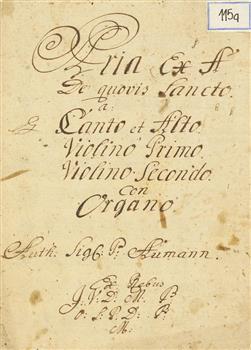 115a
Aria Ex A
De quovis Sancto.
a:
Canto et Alto.
Violino Primo.
Violino Secondo.
con
Organo.
Auth: Sig: P: Aumann.
Ex Rebus
J: V: D: M: P:
O: S: P: D: P:
M: